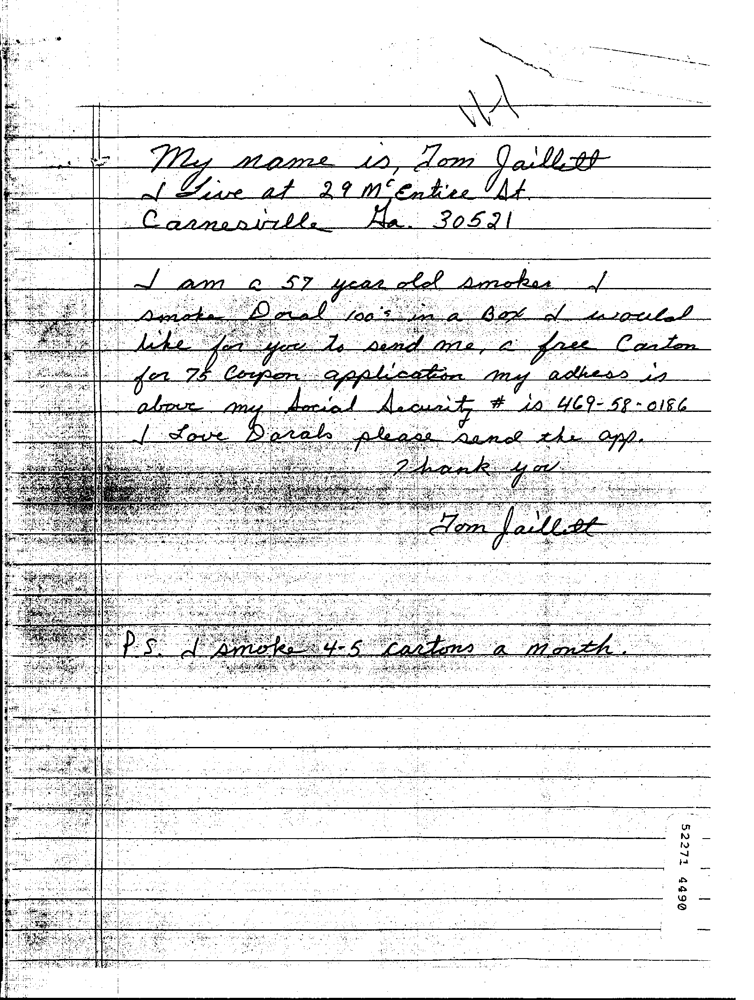 My name is, Tom Jaillett
I Live at 29 McEntire St.
Carnesville Ga. 30521
I am a 57 year old smoker I
smoke Doral 100's in a Box I would
like for you to send me, a free Carton
for 75 Coupon application my adress is
above my Social Security # is 469-58-0186
I Love Dorals please send the app.
Thank you
Tom Jaillett
P.S. I smoke 4-5 cartons a month.
52271 4490